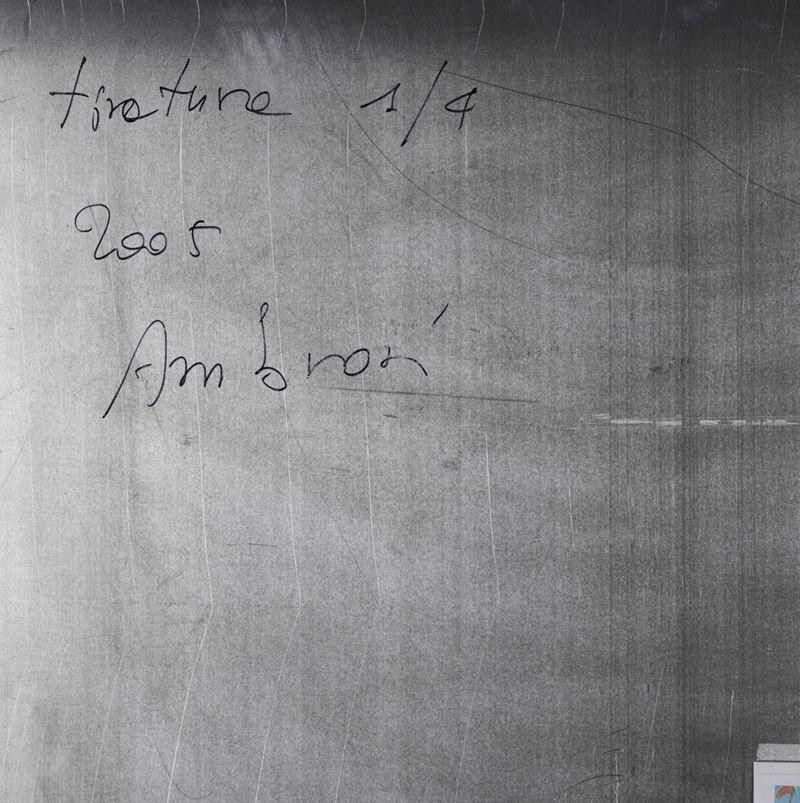 tiratura 1/4
2005
Ambron'